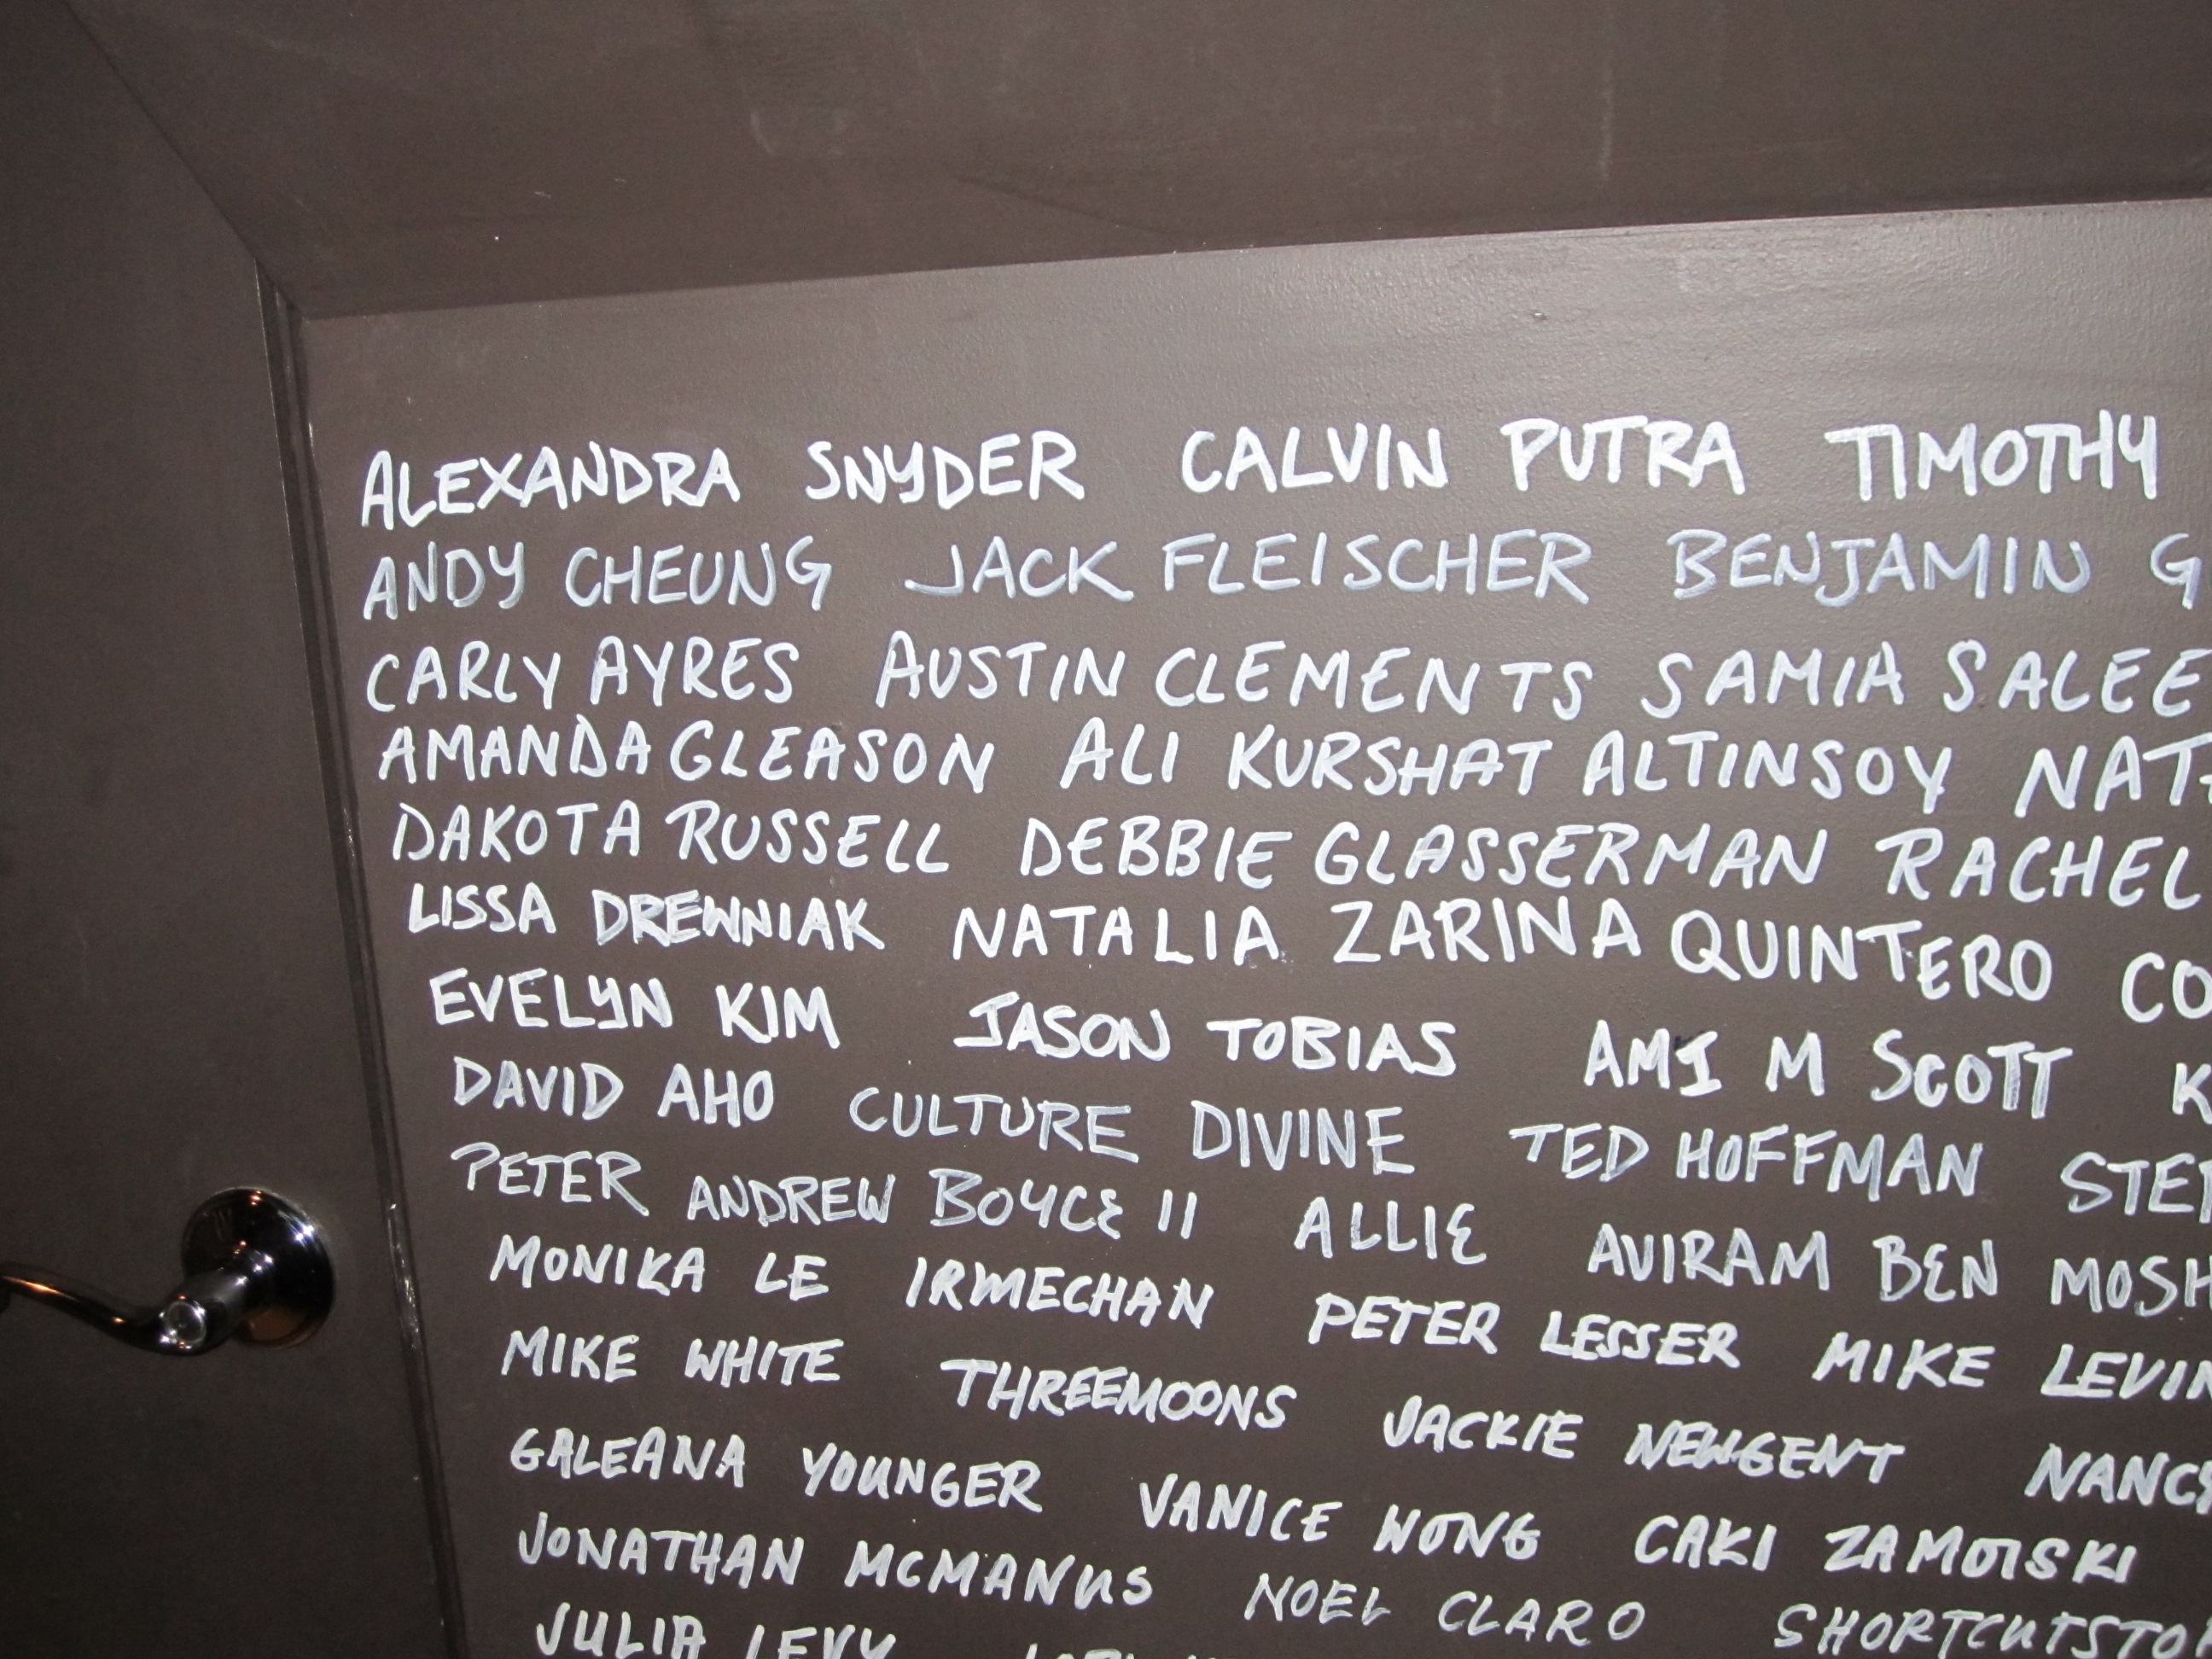 ALEXANDRA SNYDER CALVIN PUTRA TIMOTHY
ANDY CHEUNG JACK FLEISCHER BENJAMIN G
CARLY AYRES AUSTIN CLEMENTS SAMIA SALEE
AMANDA GLEASON ALI KURSHAT ALTINSOY NAT
DAKOTA RUSSELL DEBBIE GLASSERMAN RACHEL
LISSA DREWNIAK NATALIA ZARINA QUINTERO CO
EVELYN KIM JASON TOBIAS AMI M SCOTT K
DAVID AHO CULTURE DIVINE TED HOFFMAN STE
PETER ANDREW BOYCE II ALLIE AVIRAM BEN MOSH
MONIKA LE IRMECHAN PETER LESSER MIKE LEVIN
MIKE WHITE THREEMOONS JACKIE NEWGENT NANCY
GALEANA YOUNGER VANICE WONG CAKI ZAMOISKI
JONATHAN MCMANUS NOEL CLARO SHORTCUTSTO
JULIA LEVY